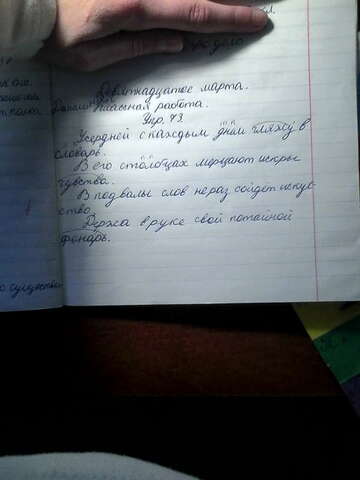 Девятнадцатое марта.
Классная работа.
Упр. 73.
Усердней с каждым днём гляжу в
словарь.
В его столбцах мерцают искры
чувства.
В подвалы слов не раз сойдет искус-
ство,
Держа в руке свой потайной
фонарь.